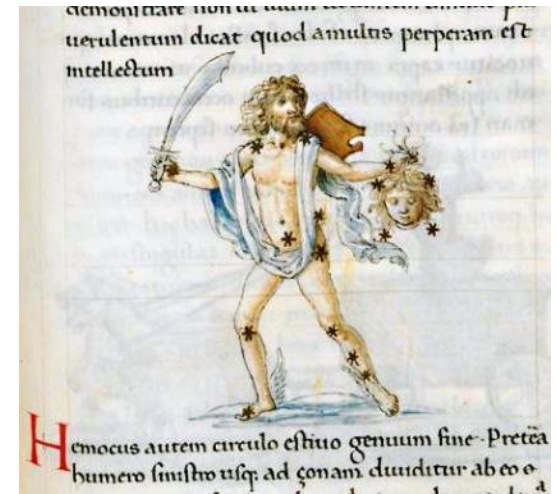 demonstrare non ut
uerulentum dicat quod amultis perperam est
intellectum
Hemocus autem circulo estiuo genuum fine. Pretea
humero sinistro usq; ad çonam diuiditur ab eo